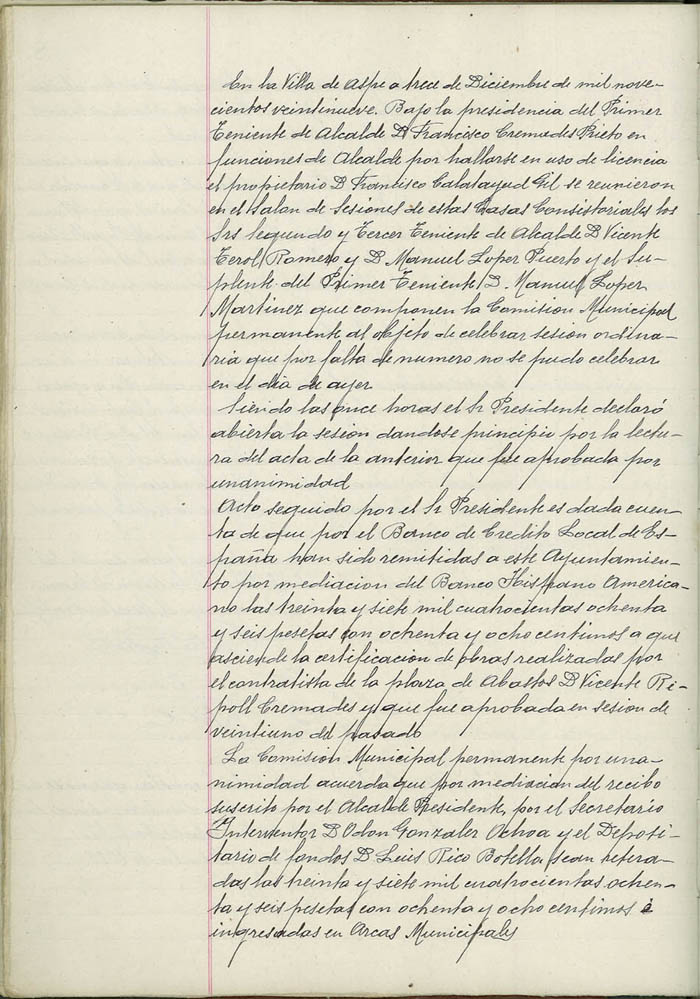 En la Villa de Aspe a trece de Diciembre de mil nove-
cientos veintinueve. Bajo la presidencia del Primer
Teniente de Alcalde D. Francisco Cremades Prieto en
funciones de Alcalde por hallarse en uso de licencia
el propietario D. Francisco Calatayud Gil se reunieron
en el Salon de Sesiones de estas Casas Consistoriales los
Srs Segundo y Tercer Teniente de Alcalde D. Vicente
Terol Romero y D. Manuel Lopez Puerto y el Su-
plente del Primer Teniente D. Manuel Lopez
Martinez que componen la Comision Municipal
permanente al objeto de celebrar sesion ordina-
ria que por falta de numero no se pudo celebrar
en el dia de ayer
Siendo las once horas el Sr Presidente declaró
abierta la sesion dandose principio por la lectu-
ra del acta de la anterior que fue aprobada por
unanimidad
Acto seguido por el Sr Presidente es dada cuen-
ta de que por el Banco de Credito Local de Es-
paña han sido remitidas a este Ayuntamien-
to por mediacion del Banco Hispano America-
no las treinta y siete mil cuatrocientas ochenta
y seis pesetas con ochenta y ocho centimos a que
asciende la certificacion de obras realizadas por
el contratista de la plaza de Abastos D. Vicente Ri-
poll Cremades y que fue aprobada en sesion de
veintiuno del pasado
La Comision Municipal permanente por una-
nimidad acuerda que por mediacion del recibo
suscrito por el Alcalde Presidente, por el Secretario
Interventor D. Odon Gonzalez Achoa y el Deposi-
tario de fondos D. Luis Rico Botella sean retira-
das las treinta y siete mil cuatrocientas ochen-
ta y seis pesetas con ochenta y ocho centimos é
ingresadas en Arcas Municipales